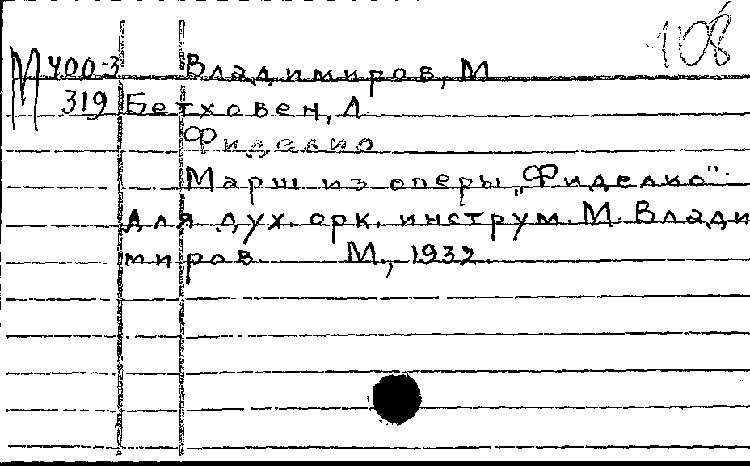 108
М 400-3 Владимиров, М
319 Бетховен, Л
Фиделио
Марш из оперы „Фиделио".
Для дух. орк. инструм. М. Влади
миров. М., 1932.